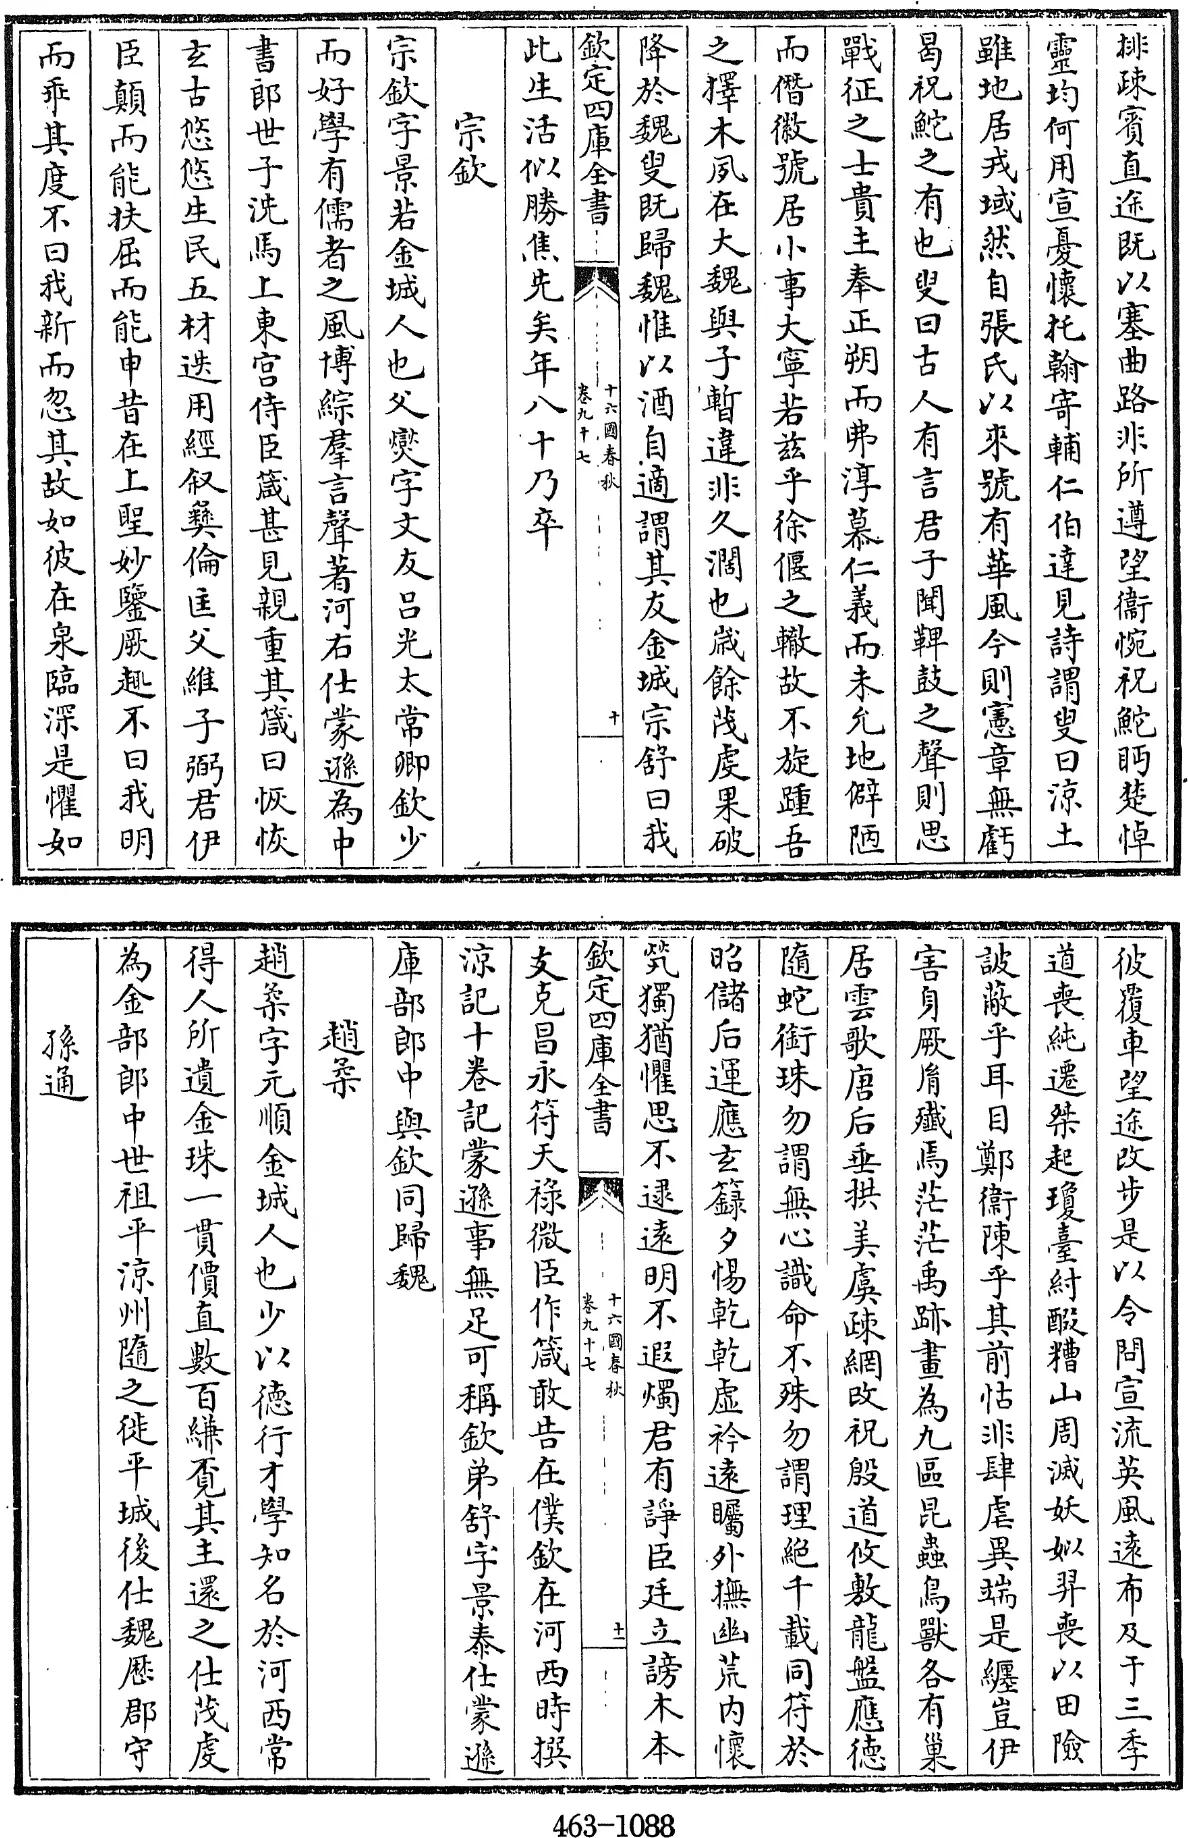 排疎賓直途既以塞曲路非所遵望衞惋祝鮀眄楚悼
靈均何用宣憂懷托翰寄輔仁伯達見詩謂叟曰涼土
雖地居戎域然自張氏以來號有華風今則憲章無虧
曷祝鮀之有也叟曰古人有言君子聞鞞鼓之聲則思
戰征之士貴主奉正朔而弗淳慕仁義而未允地僻陋
而僭徽號居小事大寧若兹乎徐偃之轍故不旋踵吾
之擇木夙在大魏與子暫違非久濶也嵗餘茂虔果破
降於魏叟既歸魏惟以酒自適謂其友金城宗舒曰我
欽定四庫全書
十六國春秋
卷九十七
十
此生活似勝焦先矣年八十乃卒
宗欽
宗欽字景若金城人也父爕字文友吕光太常卿欽少
而好學有儒者之風博綜羣言聲著河右仕蒙遜為中
書郎世子洗馬上東宫侍臣箴甚見親重其箴曰恢恢
玄古悠悠生民五材迭用經叙彝倫匡父維子弼君伊
臣顛而能扶屈而能申昔在上聖妙鑒厥趣不曰我明
而乖其度不曰我新而忽其故如彼在泉臨深是懼如
彼覆車望途改步是以令問宣流英風遠布及于三季
道喪純遷桀起瓊臺紂醊糟山周滅妖姒羿喪以田險
詖蔽乎耳目鄭衞陳乎其前怙非肆虐異端是纒豈伊
害身厥胄殱焉茫茫禹跡畫為九區昆蟲鳥獸各有巢
居雲歌唐后垂拱美虞疎網改祝殷道攸敷龍盤應徳
隨蛇銜珠勿謂無心識命不殊勿謂理絶千載同符於
昭儲后運應玄籙夕惕乾乾虚衿遠矚外撫幽荒内懷
煢獨猶懼思不逮遠明不遐燭君有諍臣廷立謗木本
欽定四庫全書
十六國春秋
卷九十七
十一
支克昌永符天祿微臣作箴敢告在僕欽在河西時撰
涼記十卷記蒙遜事無足可稱欽弟舒字景泰仕蒙遜
庫部郎中與欽同歸魏
趙柔
趙柔字元順金城人也少以徳行才學知名於河西常
得人所遺金珠一貫價直數百縑覔其主還之仕茂虔
為金部郎中世祖平涼州隨之徙平城後仕魏歴郡守
孫通
463-1088